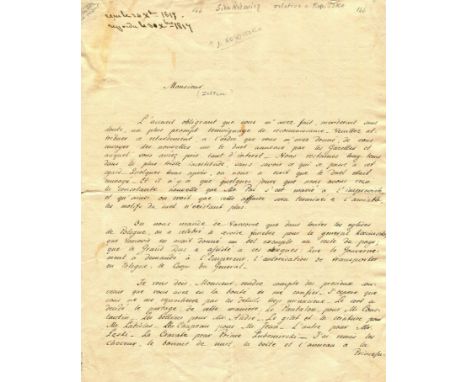 reçu le 20 Xbre 1817.
repondu le 20 Xbre 1817
Monsieur
L'accueil obligeant que vous m'avez fait, meriterait sans
doute, un plus prompt temoignage de reconnaissance. Veuillez at-
tribuer ce retardement à l'ordre que vous m'avez donné, de vous
envoyer des nouvelles sur le duel annoncé par les Gazettes et
auquel vous avez pris tant d'interet. Nous restames long tems
dans la plus triste incertitude sans savoir ce qui se passe à cet
egard. Quelques tems après, on nous a écrit que le duel était
Et il n'y a que quelques jours que nous avons reçu
la consolante nouvelle que Mr Pac s'est marié à
et qu'ainsi on croit que cette affaire sera terminée à l'amiable
les motifs du duel n'existant plus.
On nous mande de Varsovie que dans toutes les eglises
de Pologne, on a celebré le service funebre pour le general Kosciuszko
que Varsovie en avait donné un bel exemple au reste du pays,
que le Grand Duc a assisté à ces obseques; que le Gouverne-
ment a demandé à l'Empereur, l'autorisation de transporter
en Pologne, le Corps du General.
Je vous dois, Monsieur, rendre compte des precieux sou-
venirs que vous avez eu la bonté de me confier. J'espere que
vous ne me reprocherez pas les details trop minutieux. Le sort a
decidé le partage de cette maniere. Le Pantalon, pour Mr Cons-
tantin. Les bottines pour Mr André. Le gilet et la ceinture pour
Mr Ladislas. Un Chapeau pour Mr L'autre pour Mr
La Cravate pour Prince Lubomirski. J'ai remis les
cheveux, le bonnet de nuit, la boite et l'anneau à la
Princesse